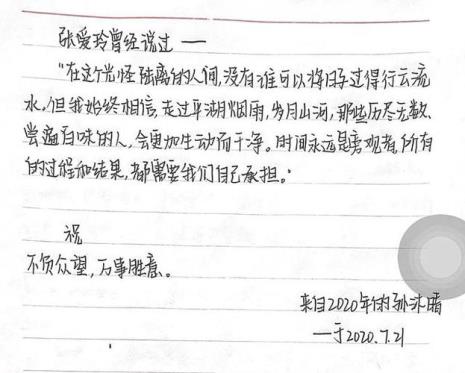 张爱玲曾经说过 —
"在这个光怪陆离的人间,没有谁可以将日子过得行云流
水。但我始终相信,走过平湖烟雨,岁月山河,那些历尽劫数、
尝遍百味的人,会更加生动而干净。时间永远是旁观者,所有
的过程和结果,都需要我们自己承担。"
祝
不负众望,万事胜意。
来自2020年的孙沐晴
—于2020.7.21